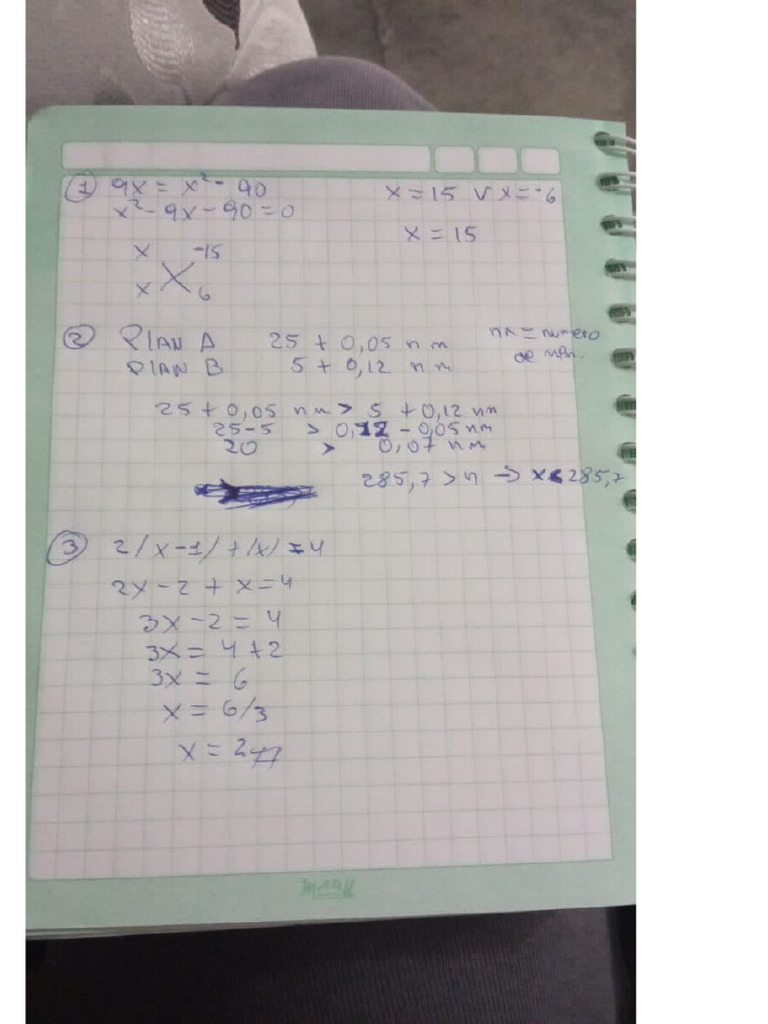 ① 9x = x² - 90
x² - 9x - 90 = 0
x -15
x 6
x = 15 v x = -6
x = 15
② PLAN A 25 + 0,05 nm
PLAN B 5 + 0,12 nm
nm = numero
de min.
25 + 0,05 nm > 5 + 0,12 nm
25 - 5 > 0,12 - 0,05 nm
20 > 0,07 nm
285,7 > n → x < 285,7
③ 2|x-1| + |x| = 4
2x - 2 + x = 4
3x - 2 = 4
3x = 4 + 2
3x = 6
x = 6/3
x = 2